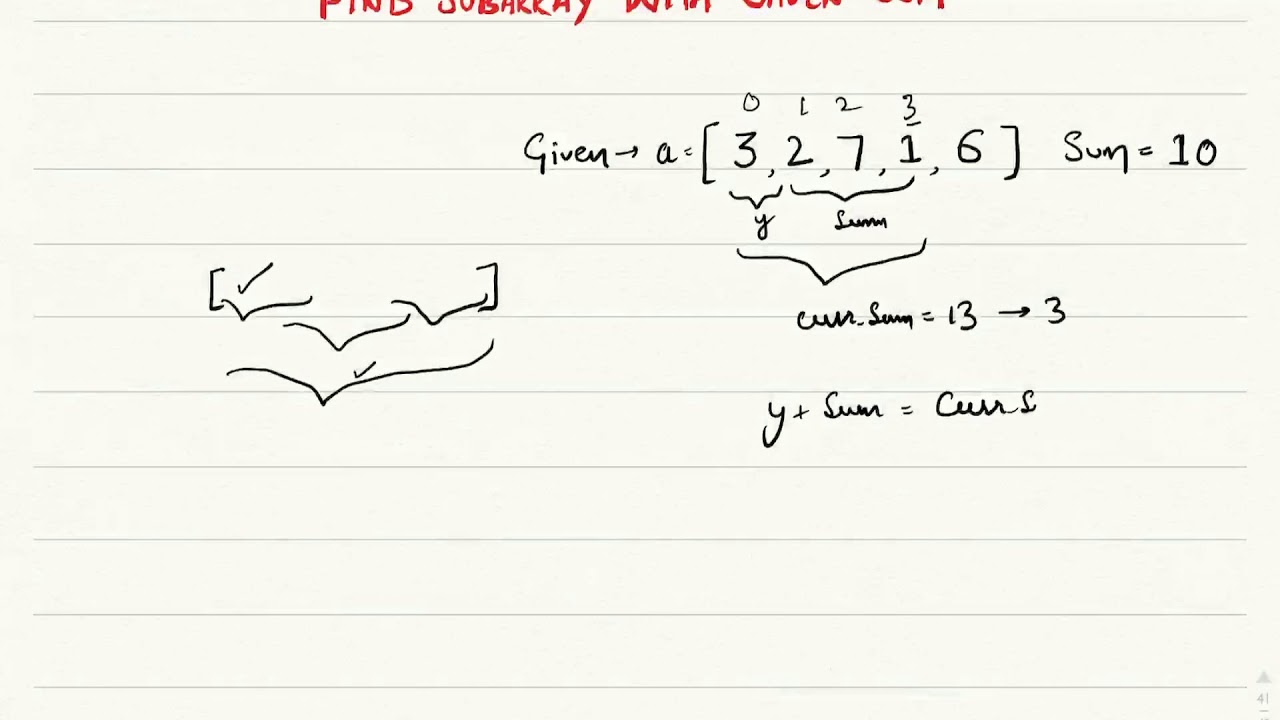 FIND SUBARRAY WITH GIVEN SUM
0 1 2 3
Given → a = [ 3, 2, 7, 1, 6 ] Sum = 10
y Sum
curr_sum = 13 → 3
y + Sum = Curr S
41